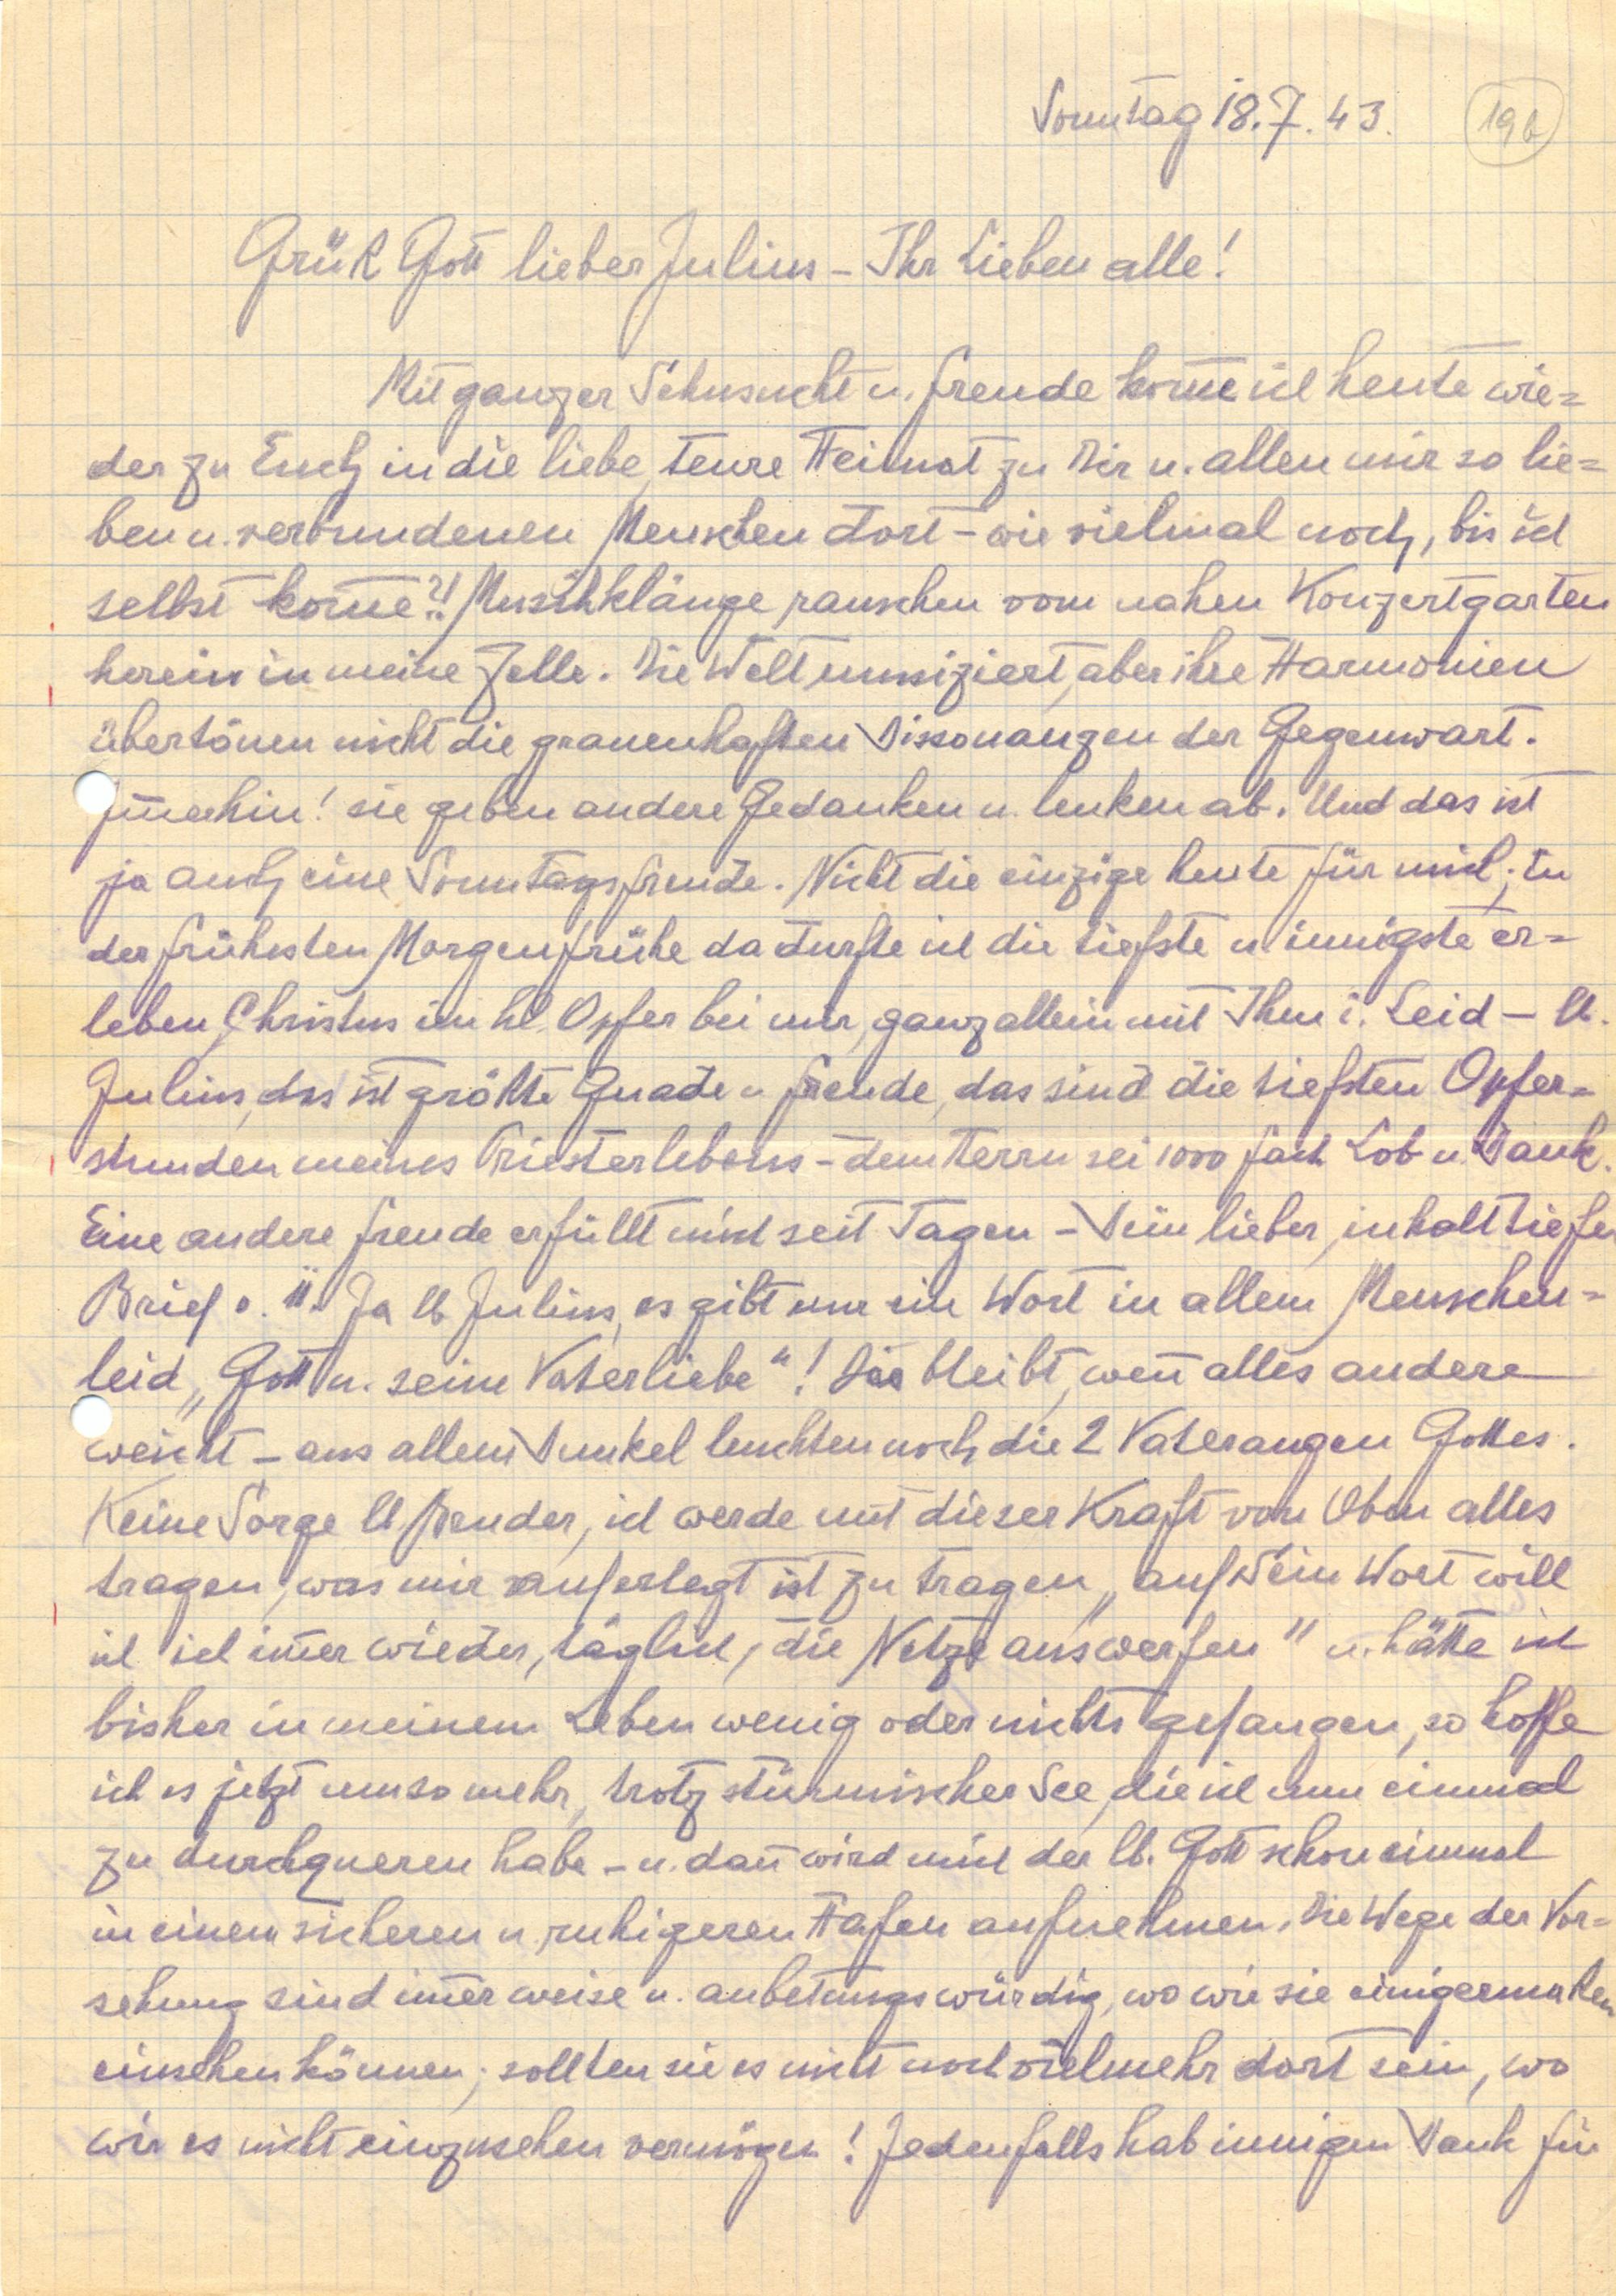 Sonntag 18.7.43. 19b
Grüß Gott lieber Julius – Ihr Lieben alle!
Mit ganzer Sehnsucht u. Freude kom̅e ich heute wie=
der zu Euch in die liebe, teure Heimat zu Dir u. allen mir so lie=
ben u. verbundenen Menschen dort – wie vielmal noch, bis ich
selbst kom̅e?! Musikklänge rauschen vom nahen Konzertgarten
herein in meine Zelle. Die Welt musiziert, aber ihre Harmonien
übertönen nicht die grauenhaften Dissonanzen der Gegenwart.
Im̅erhin! sie geben andere Gedanken u. lenken ab. Und das ist
ja auch eine Sonntagsfreude. Nicht die einzige heute für mich; in
der frühesten Morgenfrühe da durfte ich die tiefste u. innigste er=
leben, Christus im hl. Opfer bei mir, ganz allein mit Ihm i. Leid – lb.
Julius, das ist größte Gnade u. Freude, das sind die tiefsten Opfer=
stunden meines Priesterlebens – dem Herrn sei 1000 fach Lob u. Dank.
Eine andere Freude erfüllt mich seit Tagen – Dein lieber, inhalttiefer
Brief v. 11. Ja lb Julius, es gibt nur ein Wort in allem Menschen=
leid „Gott u. seine Vaterliebe“! Die bleibt, wen̅ alles andere
weicht – aus allem Dunkel leuchten noch die 2 Vateraugen Gottes.
Keine Sorge lb Bruder, ich werde mit dieser Kraft von Oben alles
tragen, was mir auferlegt ist zu tragen, „auf Dein Wort will
ich ich im̅er wieder, täglich, die Netze auswerfen“ u. hätte ich
bisher in meinem Leben wenig oder nichts gefangen, so hoffe
ich es jetzt umso mehr, trotz stürmischer See, die ich nun einmal
zu durchqueren habe – u. dan̅ wird mich der lb. Gott schon einmal
in einen sicheren u. ruhigeren Hafen aufnehmen. Die Wege der Vor=
sehung sind im̅er weise u. anbetungswürdig, wo wir sie einigermaßen
einsehen können; sollten sie es nicht noch vielmehr dort sein, wo
wir es nicht einzusehen vermögen! Jedenfalls hab innigen Dank für